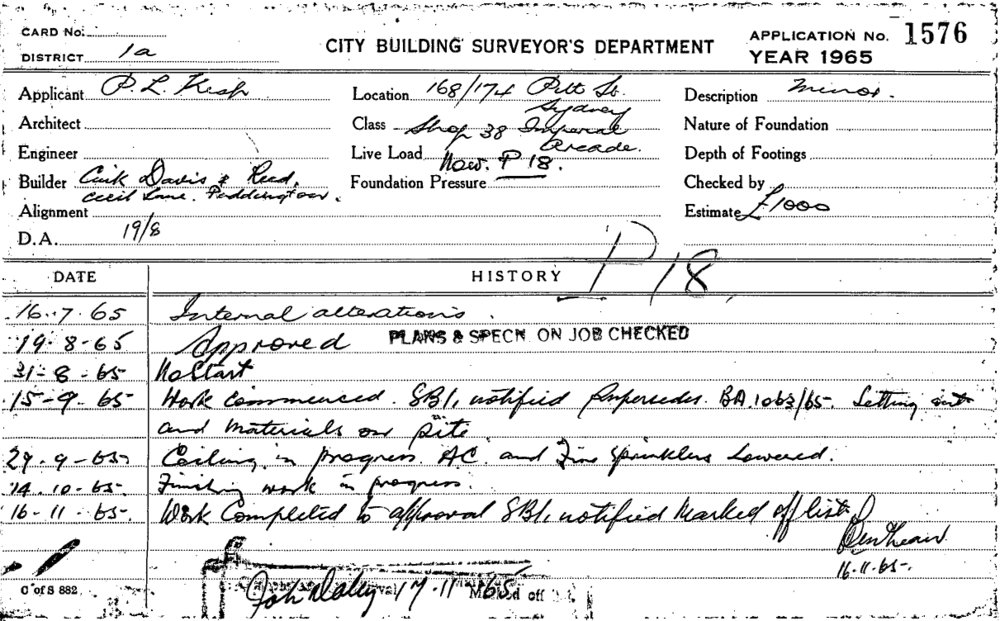 CARD No.
DISTRICT 1a
CITY BUILDING SURVEYOR'S DEPARTMENT
APPLICATION No. 1576
YEAR 1965
Applicant P. L. Kesp
Location 168/174 Pitt St.
Sydney
Description Minor.
Architect
Class Shop 38 Imperial
Arcade.
Nature of Foundation
Engineer
Live Load Now. P 18.
Depth of Footings
Builder Cink Davis & Reed,
Cecil Lane. Paddington.
Foundation Pressure
Checked by
Alignment
Estimate £1000
D.A. 19/8
P 18.
DATE HISTORY
16.7.65 Internal alterations.
19-8-65 Approved PLANS & SPECN ON JOB CHECKED
31-8-65 No Start
15-9-65 Work commenced. SB1. notified Supersedes. BA.1063/65. Setting out
and materials on site
29-9-65 Ceiling in progress. AC. and Fire Sprinklers Lowered.
14.10.65. Finishing work in progress.
16-11-65- Work Completed to approval SB1. notified Marked off list
16.11.65.
C of S 882
John Daley 17.11.65